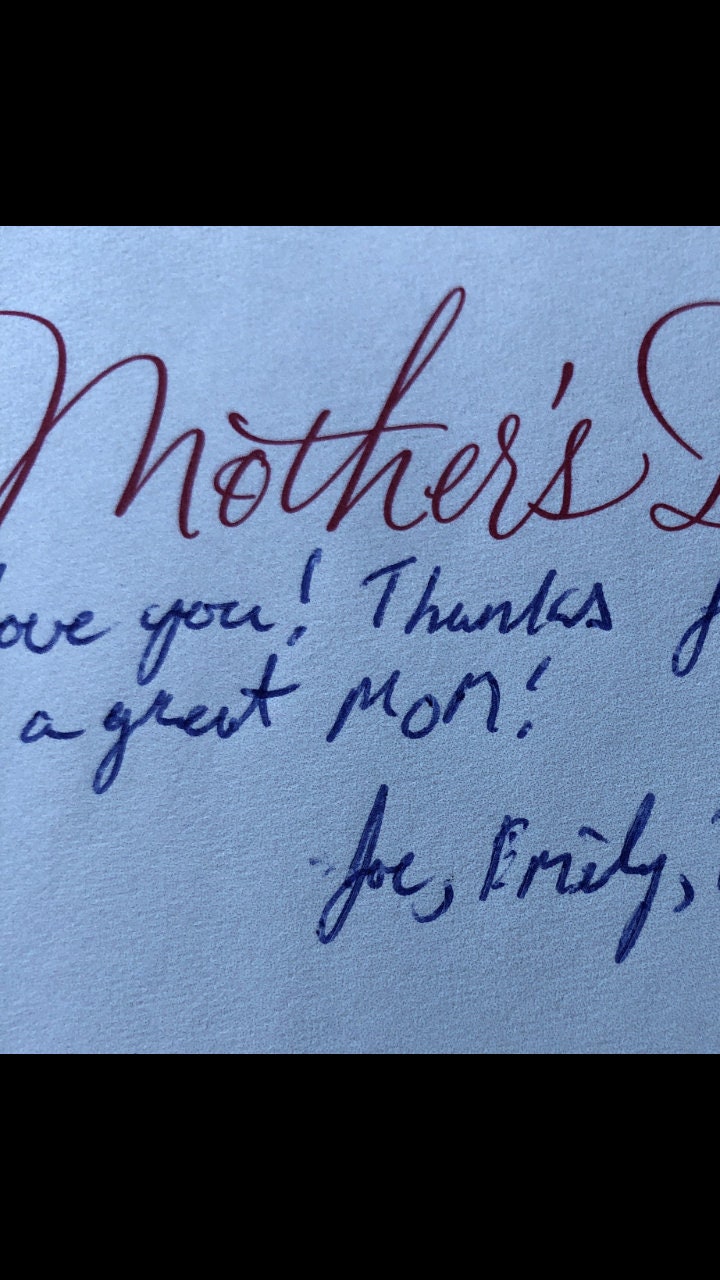 Mother's D
ove you! Thanks f
a great MOM!
Joe, Emily,